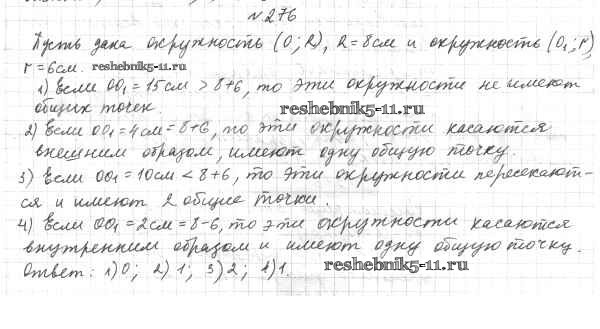 №276
Пусть дана окружность (O; R), R = 8см и окружность (O₁; r),
r = 6см. reshebnik5-11.ru
1) Если OO₁ = 15см > 8+6, то эти окружности не имеют
общих точек. reshebnik5-11.ru
2) Если OO₁ = 4см = 8+6, то эти окружности касаются
внешним образом, имеют одну общую точку.
3) Если OO₁ = 10см < 8+6, то эти окружности пересекают-
ся и имеют 2 общие точки.
4) Если OO₁ = 2см = 8-6, то эти окружности касаются
внутренним образом и имеют одну общую точку.
Ответ: 1) 0; 2) 1; 3) 2; 4) 1. reshebnik5-11.ru